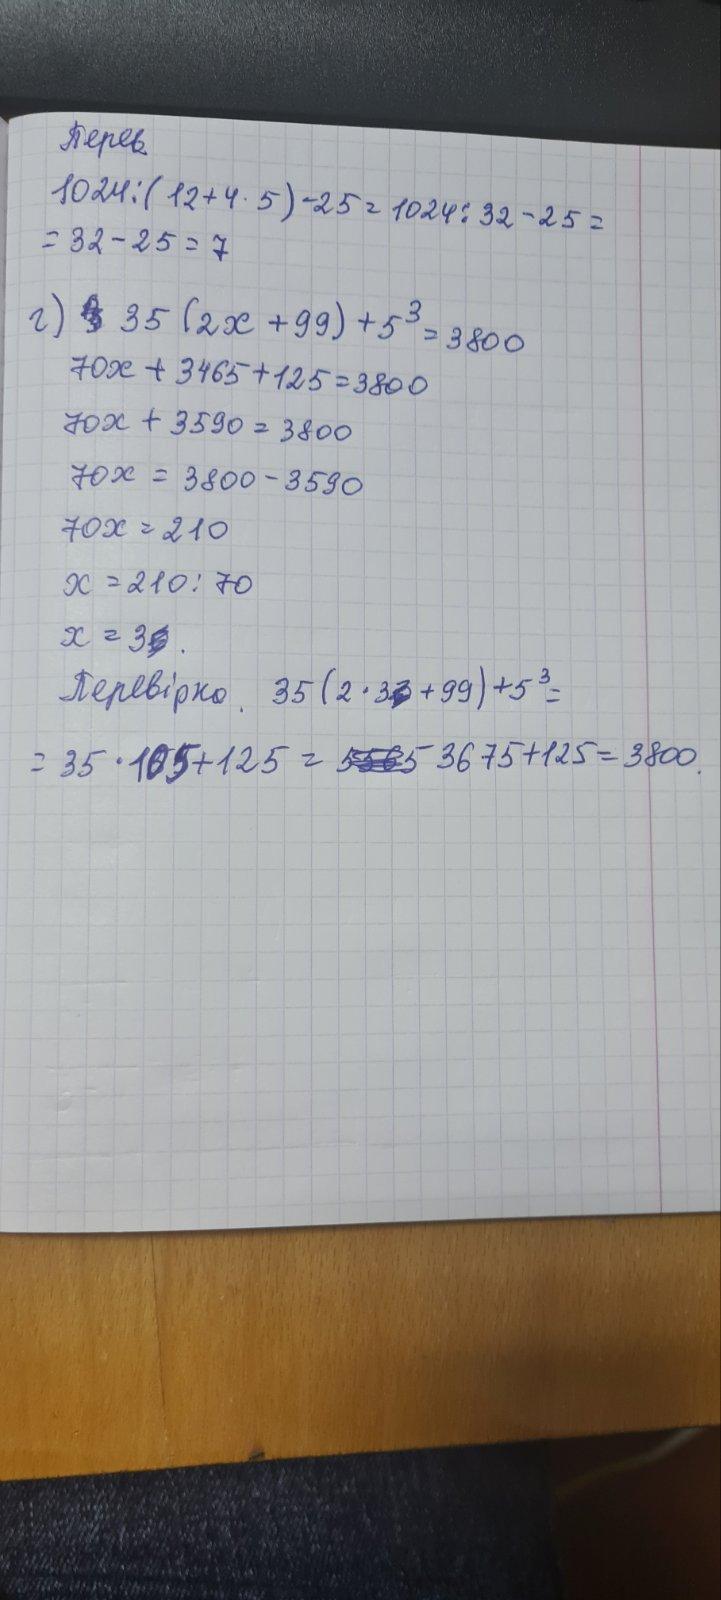 Перев
1024:(12+4·5)-25=1024:32-25=
=32-25=7
г) 35(2x+99)+5³=3800
70x+3465+125=3800
70x+3590=3800
70x=3800-3590
70x=210
x=210:70
x=3.
Перевірка. 35(2·3+99)+5³=
=35·105+125= 3675+125=3800.